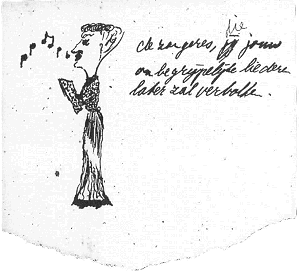 de zangeres, die jouw
onbegrijpelijke liedere
later zal vertolke.